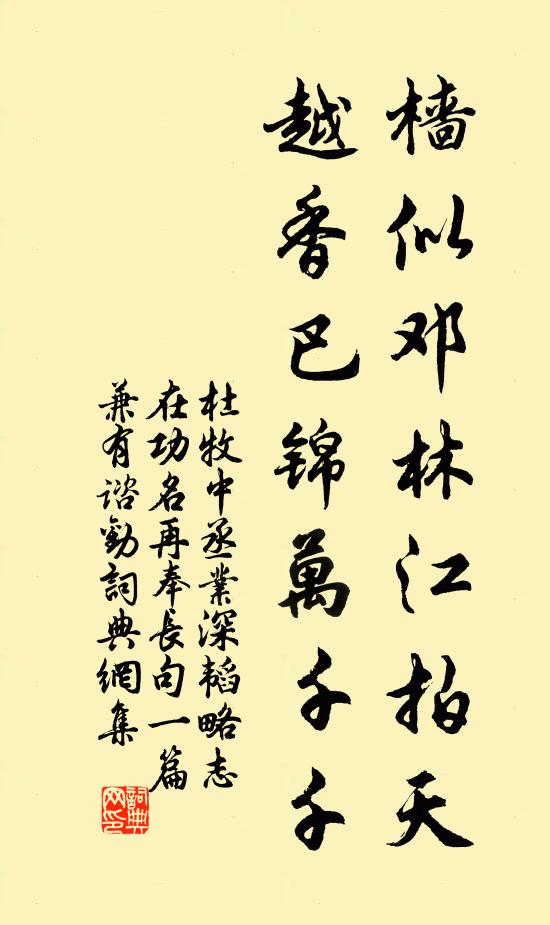 樯似邓林江拍天
越香巴锦萬千千
杜牧中丞業深韬略志
在功名再奉長句一篇
兼有谘勸詞典網集
詞典
网印